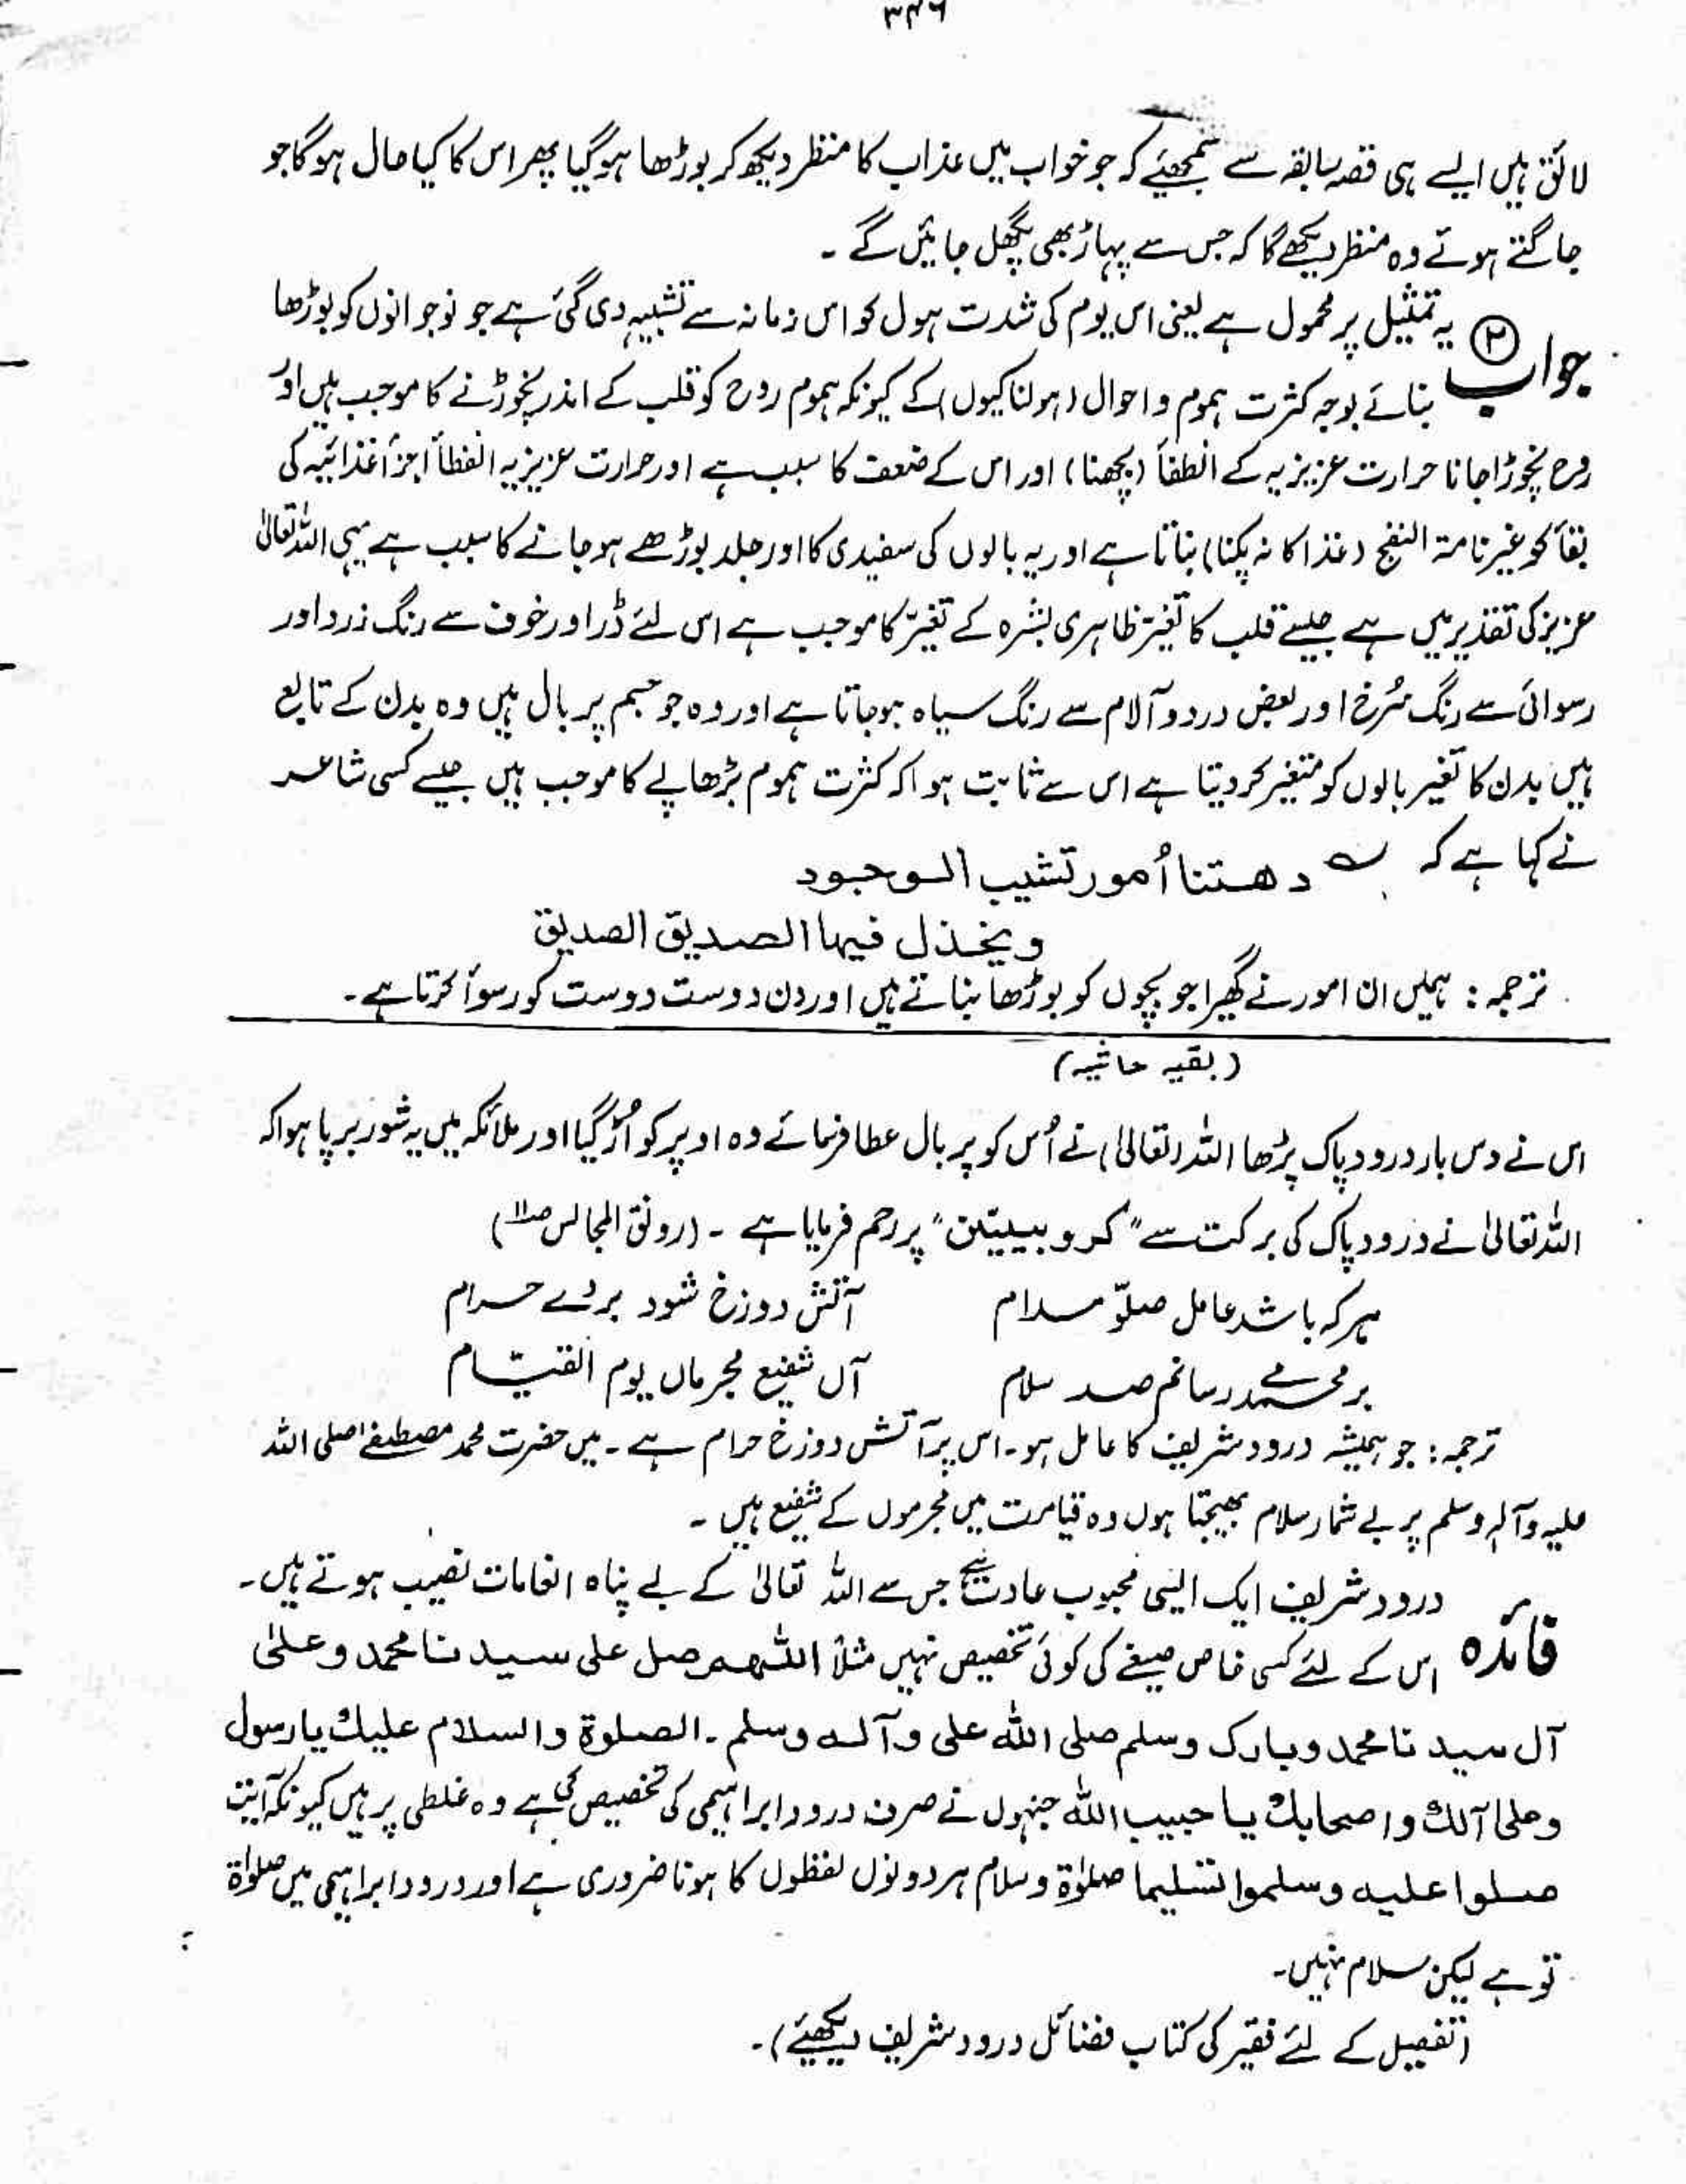 ۳۴۶
لائق ہیں ایسے ہی قصہ سابقہ سے سمجھئے کہ جو خواب میں عذاب کا منظر دیکھ کر بوڑھا ہوگیا پھر اس کا کیا حال ہوگا جو
جاگتے ہوئے وہ منظر دیکھے گا کہ جس سے پہاڑ بھی پگھل جائیں گے ۔
جواب ② یہ تمثیل پر محمول ہے یعنی اس یوم کی شدت ہول کو اس زمانہ سے تشبیہ دی گئی ہے جو نوجوانوں کو بوڑھا
بنائے بوجہ کثرت ہموم و احوال (ہولناکیوں) کے کیونکہ ہموم روح کو قلب کے اندر نچوڑنے کا موجب ہیں اور
روح نچوڑا جانا حرارت عزیزیہ کے انطفأ (بجھنا) اور اس کے ضعف کا سبب ہے اور حرارت عزیزیہ انفطأ اجزأ غذائیہ کی
بقأ کو غیر تامۃ النفج (غذا کا نہ پکنا) بناتا ہے اور یہ بالوں کی سفیدی کا اور جلد بوڑھے ہو جانے کا سبب ہے یہی اللہ تعالیٰ
عزیز کی تقدیر میں ہے جیسے قلب کا تغیر ظاہری بشرہ کے تغیّر کا موجب ہے اس لئے ڈر اور خوف سے رنگ زرد اور
رسوائی سے رنگ سُرخ اور بعض درد و آلام سے رنگ سیاہ ہوجاتا ہے اور وہ جو جسم پر بال ہیں وہ بدن کے تابع
ہیں بدن کا تغیر بالوں کو متغیر کردیتا ہے اس سے ثابت ہوا کہ کثرت ہموم بڑھاپے کا موجب ہیں جیسے کسی شاعر
نے کہا ہے کہ ؎ دھتنا أمور تشیب الوجود
ویخذل فیھا الصدیق الصدیق
ترجمہ : ہمیں ان امور نے گھیرا جو بچوں کو بوڑھا بناتے ہیں اور دن دوست دوست کو رسوأ کرتا ہے ۔
(بقیہ حاشیہ)
اس نے دس بار درود پاک پڑھا اللہ (تعالیٰ) نے اُس کو پر بال عطا فرمائے وہ اوپر کو اُڑ گیا اور ملائکہ میں یہ شور برپا ہوا کہ
اللہ تعالیٰ نے درود پاک کی برکت سے "کروبیین" پر رحم فرمایا ہے ۔ (رونق المجالس صلا)
ہر کہ باشد عامل صلوّ مدام آتش دوزخ شود بردے حرام
بر محمد مے رسانم صد سلام آں شفیع مجرماں یوم القیّام
ترجمہ : جو ہمیشہ درود شریف کا عامل ہو ۔ اس پر آتش دوزخ حرام ہے ۔ میں حضرت محمد مصطفےٰ صلی اللہ
علیہ وآلہ وسلم پر بے شمار سلام بھیجتا ہوں وہ قیامت میں مجرموں کے شفیع ہیں ۔
فائدہ درود شریف ایک ایسی محبوب عادت ہے جس سے اللہ تعالیٰ کے بے پناہ انعامات نصیب ہوتے ہیں ۔
اس کے لئے کسی خاص صیغے کی کوئی تخصیص نہیں مثلاً اللھم صل علی سیدنا محمد وعلیٰ
آل سیدنا محمد وبارک وسلم صلی اللہ علی وآلہ وسلم ۔ الصلوۃ والسلام علیك یا رسول
وعلیٰ آلك واصحابك یا حبیب اللہ جنہوں نے صرف درود ابراہیمی کی تخصیص کی ہے وہ غلطی پر ہیں کیونکہ آیت
صلوا علیہ وسلموا تسلیما صلوٰۃ و سلام ہر دونوں لفظوں کا ہونا ضروری ہے اور درود ابراہیمی میں صلوٰۃ
تو ہے لیکن سلام نہیں ۔
(تفصیل کے لئے فقیر کی کتاب فضائل درود شریف دیکھئے) ۔